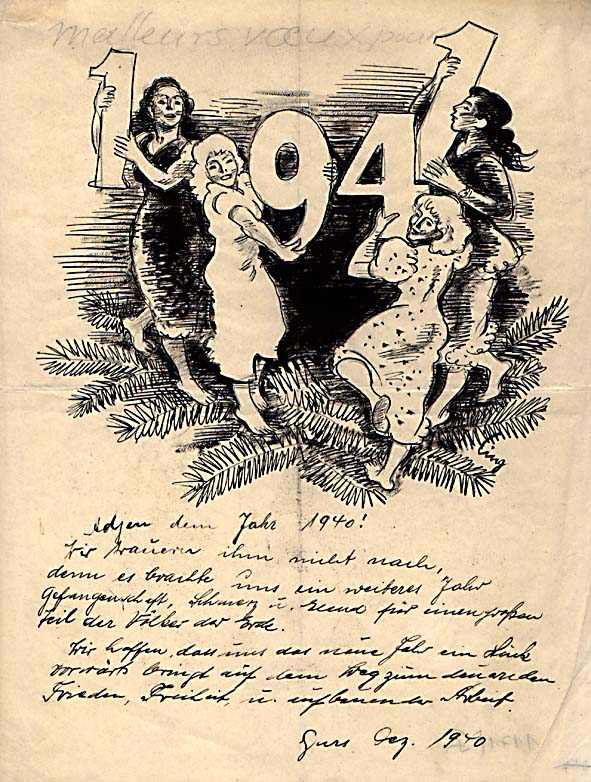 meilleurs vœux pour
1941
Ling
Adjeu dem Jahr 1940!
Wir trauern ihm nicht nach,
denn es brachte uns ein weiteres Jahr
Gefangenschaft, Schmerz u. Elend für einen großen
Teil der Völker der Erde.
Wir hoffen, dass uns das neue Jahr ein Stück
vorwärts bringt auf dem Weg zum dauernden
Frieden, Freiheit, u. aufbauender Arbeit.
Gurs Dez. 1940